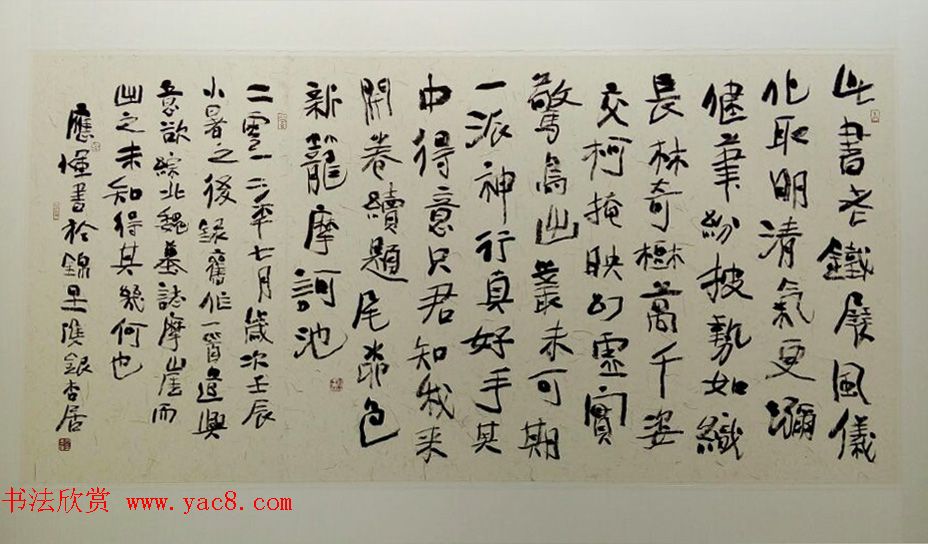 此書老鐵展風儀
化取明清氣更瀰
健筆紛披勢如織
長林奇樹萬千姿
交柯掩映幻虛實
驚鳥出叢未可期
一派神行真好手其
中得意只君知我來
開卷續題尾
色
新籠摩訶池
二零一二年七月歲次壬辰
小暑之後錄舊作一首遣興
意欲綜北魏墓誌摩崖而
出之未知得其幾何也
應
書於錦里
銀杏居
书法欣赏 www.yac8.com